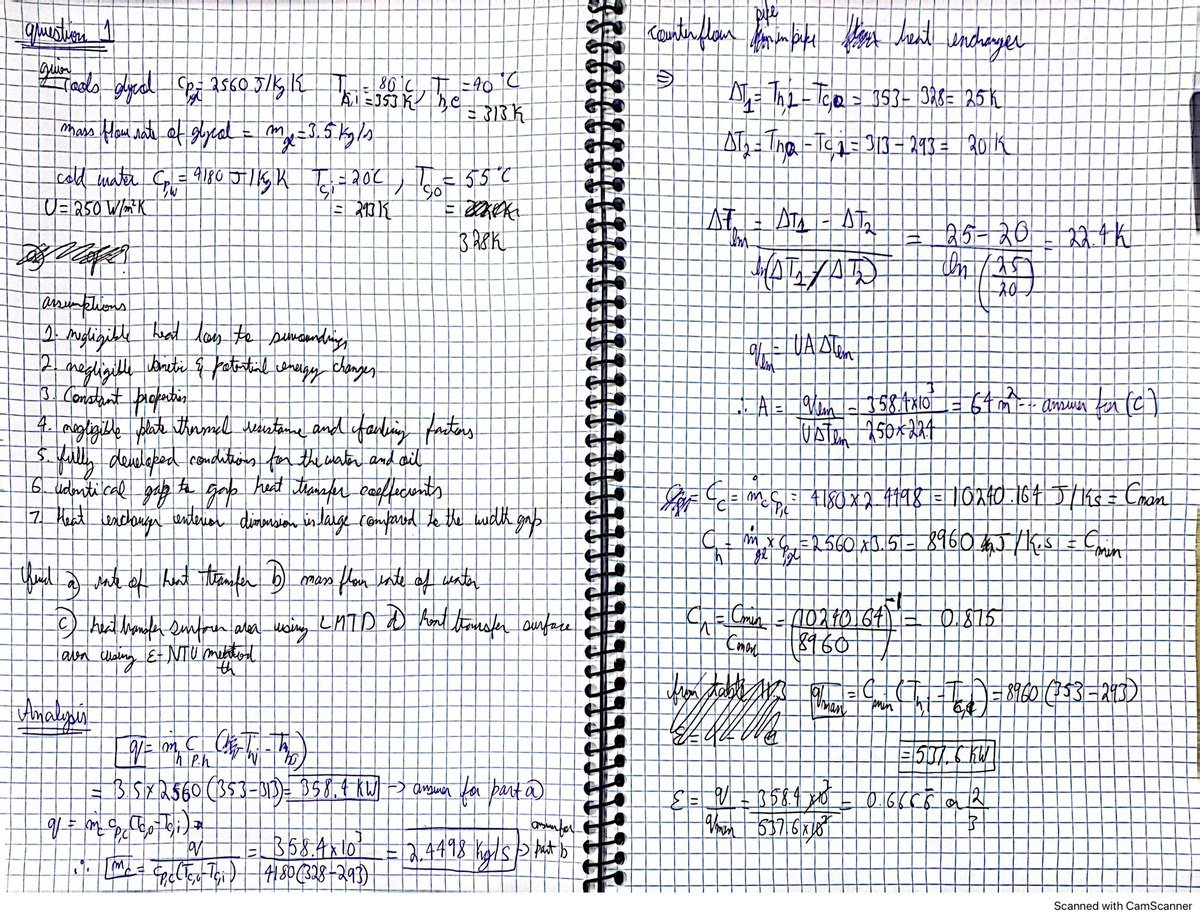 question 1
given
Cools glycol Cp,gl = 2560 J/kg K T_h,i = 80°C, T_h,o = 40°C
= 353 K = 313 K
mass flow rate of glycol = m_gl = 3.5 kg/s
cold water Cp,w = 4180 J/kg K T_c,i = 20C, T_c,o = 55°C
U = 250 W/m²K = 293 K =
328K
assumptions
1. negligible heat loss to surroundings
2. negligible kinetic & potential energy changes
3. Constant properties
4. negligible plate thermal resistance and fouling factors
5. fully developed conditions for the water and oil
6. identical gap to gap heat transfer coeffecients
7. Heat exchanger exterior dimension is large compared to the width gap
find a) rate of heat transfer b) mass flow rate of water
c) heat transfer surface area using LMTD d) heat transfer surface
area using ε-NTU method
Analysis
q = ṁ_h C_p,h (T_h,i - T_h,o)
= 3.5 x 2560 (353-313) = 358.4 KW → answer for part a)
q = ṁ_c C_p,c (T_c,o - T_c,i)
∴ ṁ_c = q / C_p,c (T_c,o - T_c,i) = 358.4x10³ / 4180(328-293) = 2.4498 kg/s → answer for part b
counterflow pipe in pipe heat exchanger
⇒ ΔT1 = Th,1 - Tc,o = 353 - 328 = 25K
ΔT2 = Th,o - Tc,i = 313 - 293 = 20 K
ΔT_lm = ΔT1 - ΔT2 / ln(ΔT1/ΔT2) = 25-20 / ln(25/20) = 22.4 K
q_lm = UAΔT_lm
∴ A = q_lm / UΔT_lm = 358.4x10³ / 250x22.4 = 64 m² ... answer for (c)
= C_c = ṁ_c C_p,c = 4180 x 2.4498 = 10240.164 J/Ks = Cmax
C_h = ṁ_gl x C_p,gl = 2560 x 3.5 = 8960 J/K.s = Cmin
C_r = Cmin / Cmax = (10240.64 / 8960)⁻¹ = 0.875
from table 11.3 qmax = Cmin (T_h,i - T_c,i) = 8960 (353-293)
= 537.6 KW
ε = q / qmax = 358.4 x10³ / 537.6x10³ = 0.6666 or 2/3
Scanned with CamScanner